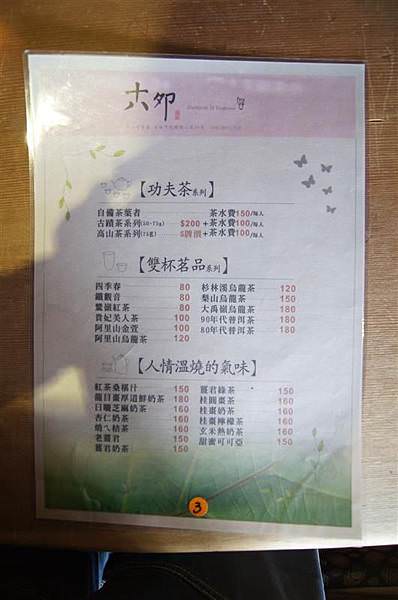 六夘
【功夫茶系列】
自備茶葉者 茶水費150/每人
古蹟茶系列(50-75g) $200+茶水費100/每人
高山茶系列(75g) $牌價+茶水費100/每人
【雙杯茗品系列】
四季春 80 杉林溪烏龍茶 120
鐵觀音 80 梨山烏龍茶 150
鶯嶺紅茶 80 大禹嶺烏龍茶 180
貴妃美人茶 100 90年代普洱茶 180
阿里山金萱 100 80年代普洱茶 180
阿里山烏龍茶 120
【人情溫燒的氣味】
紅茶桑椹汁 150 薑君綠茶 150
龍目棗厚道鮮奶茶 180 桂圓棗茶 160
日曬芝麻奶茶 160 桂棗奶茶 160
杏仁奶茶 160 桂棗檸檬茶 160
燒ㄟ桔茶 160 玄米熱奶茶 160
老薑君 150 甜蜜可可亞 150
薑君奶茶 150
3